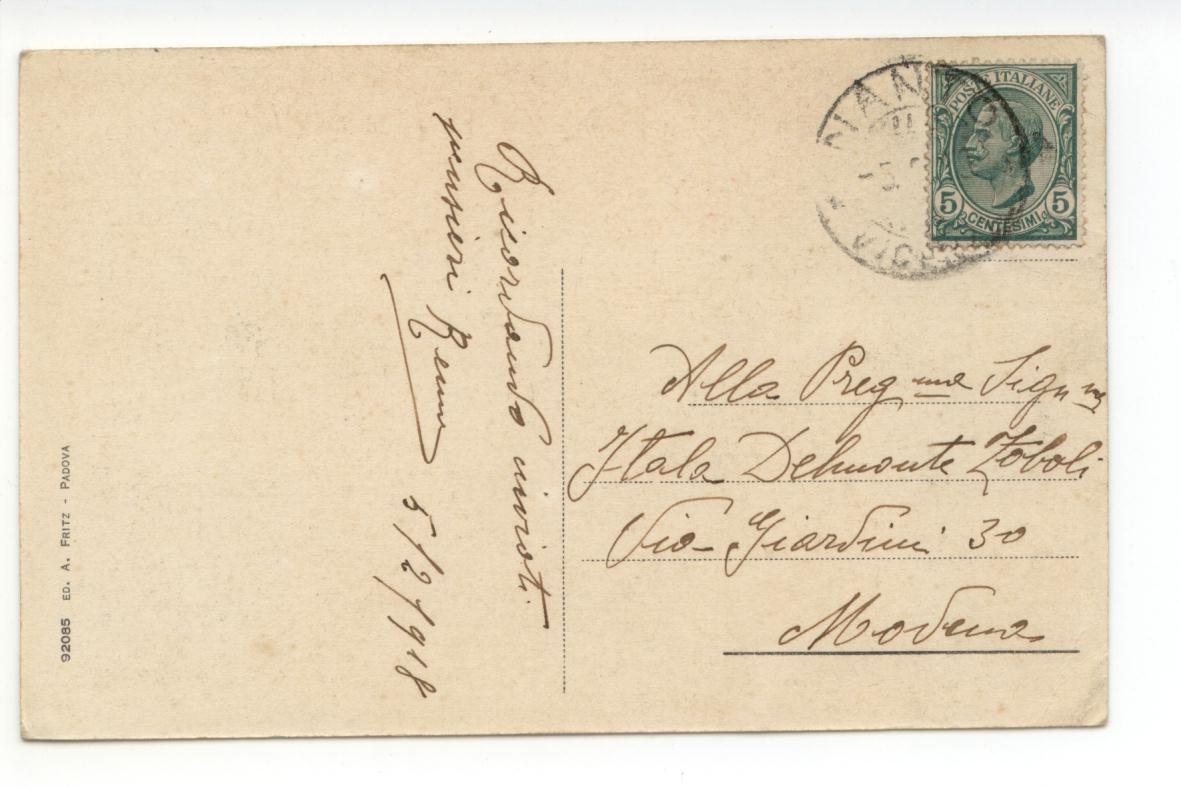 Ricordando inviati
pensieri
5/2/918
92085 ED. A. FRITZ - PADOVA
POSTE ITALIANE
5 CENTESIMI 5
Alla Preg ma Sig na
Itala Delmonte Zoboli
Via Giardini 30
Modena